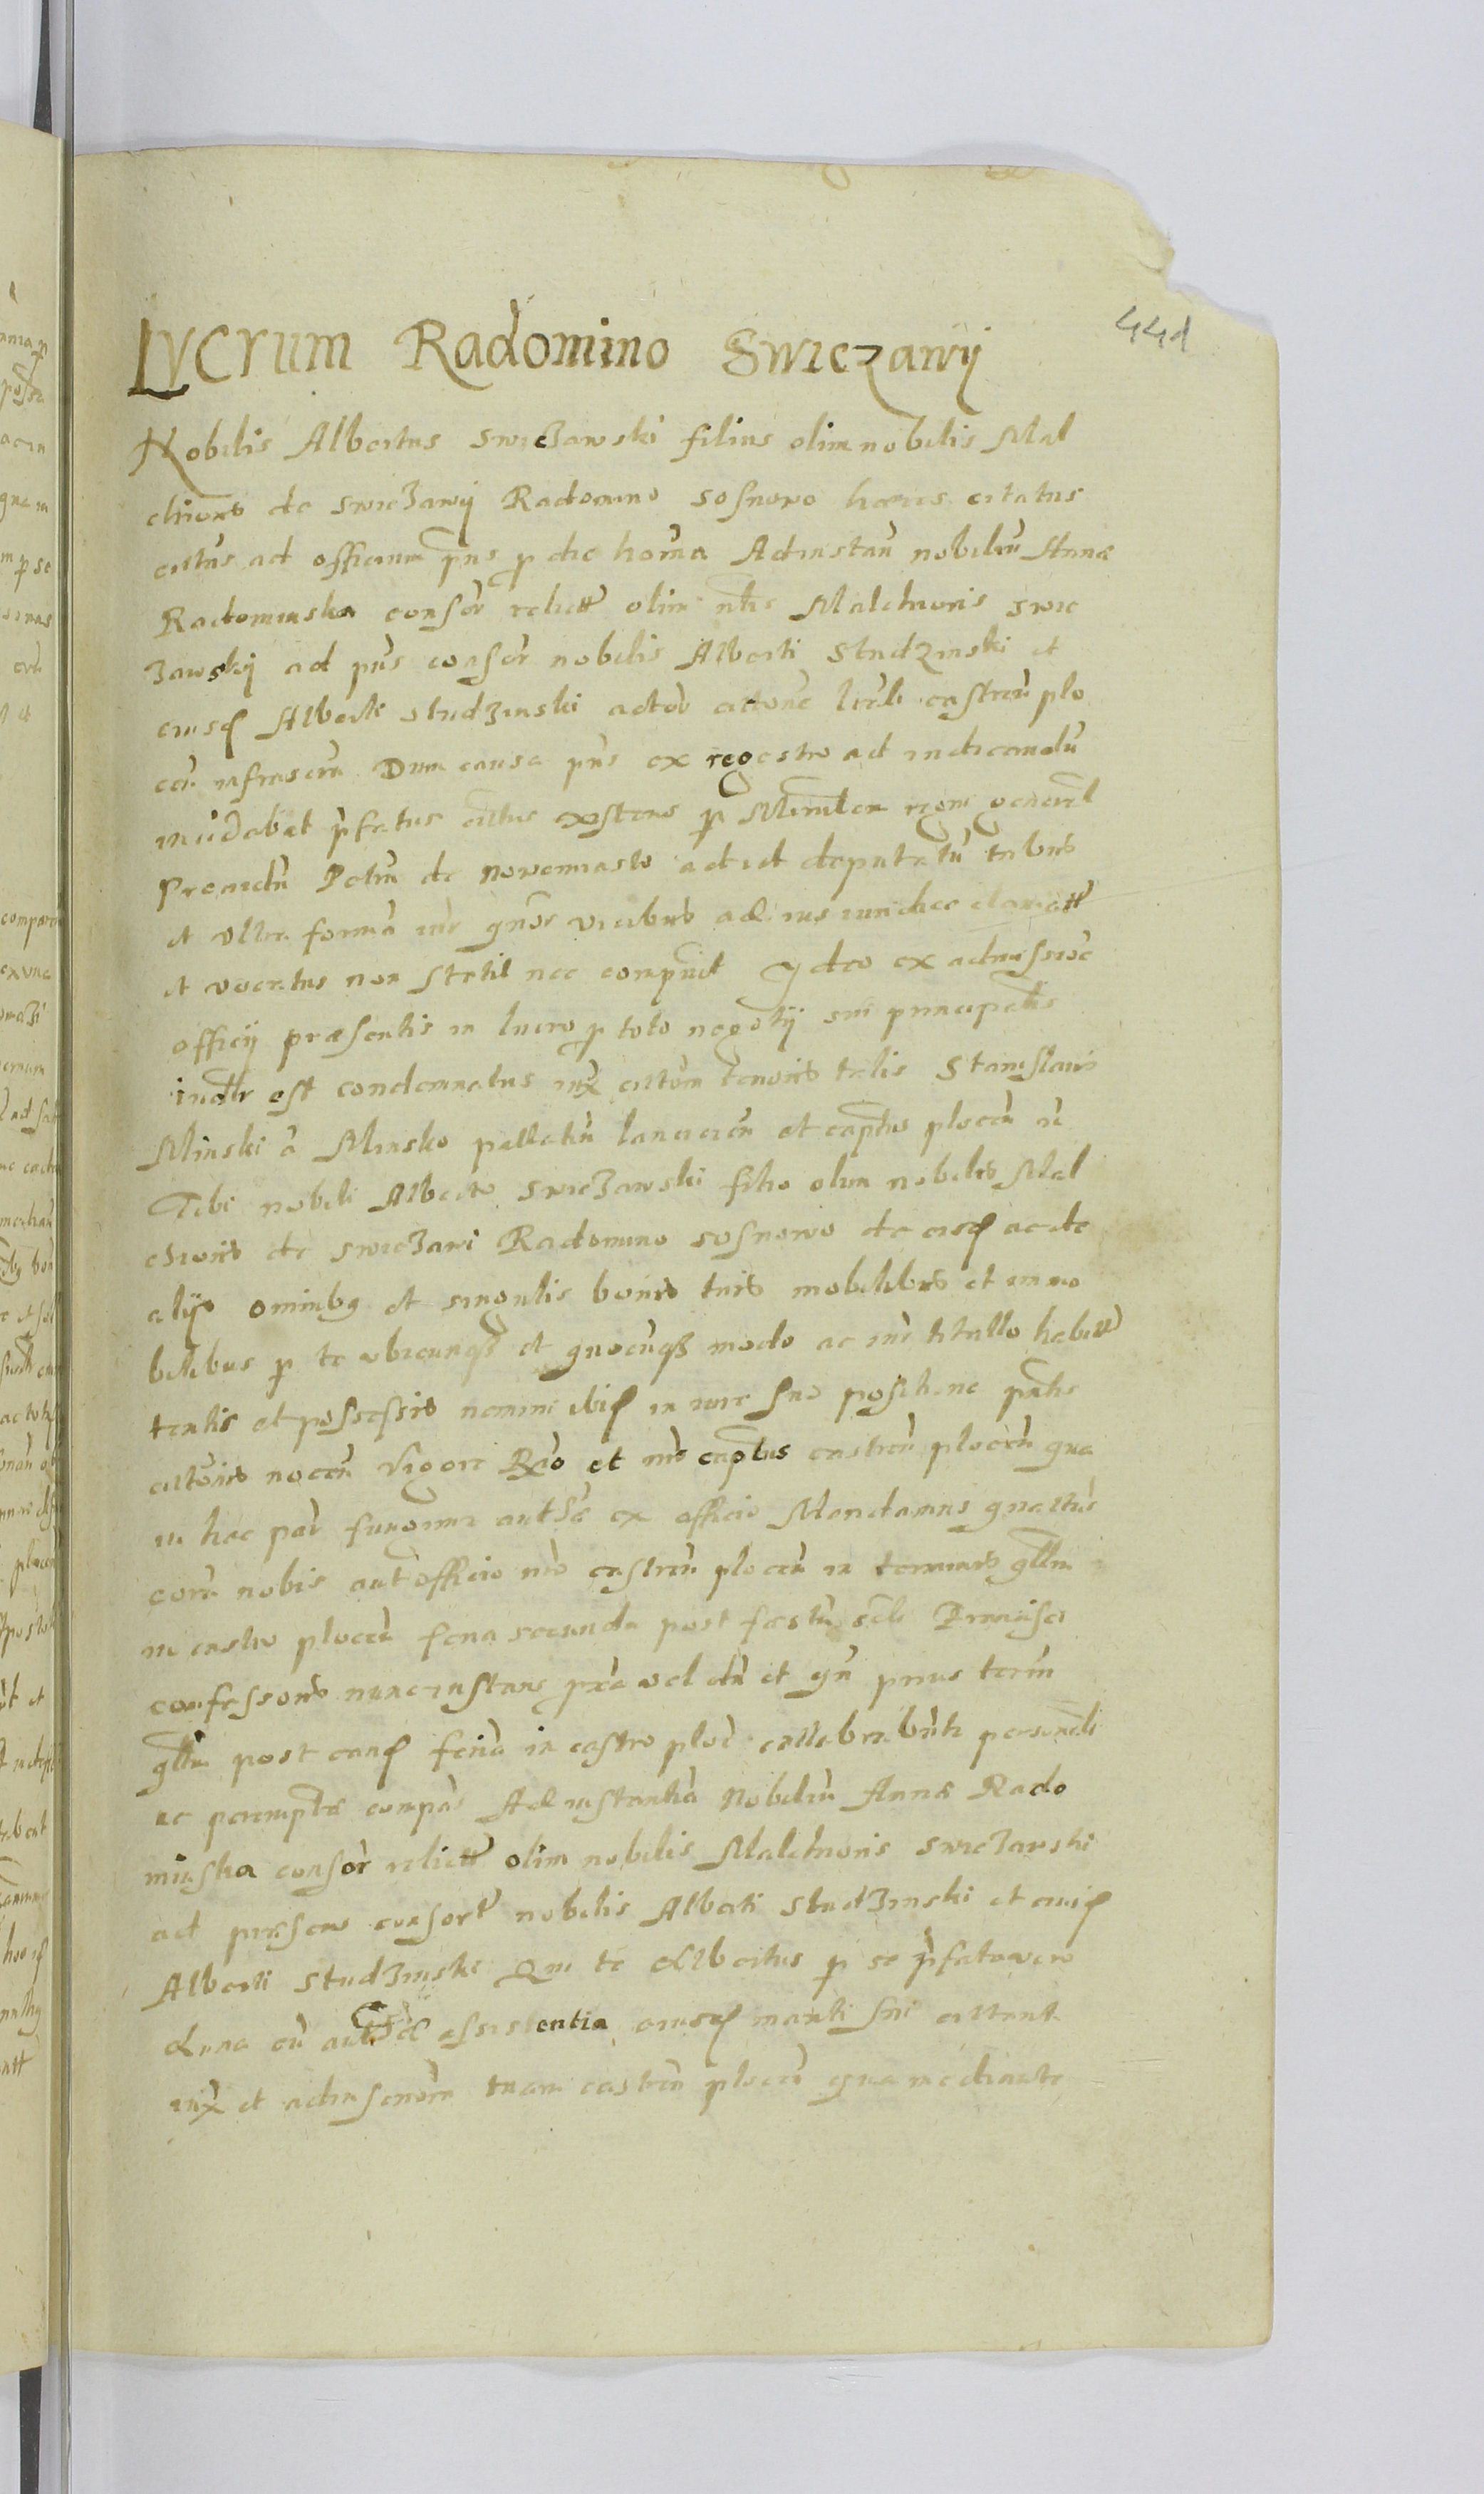 441
Lucrum Radomino Swiezawij
Nobilis Albertus Swiezawski filius olim nobilis Mal
chioris de Swiezawij Radomino Sosnowo hæres citatus
citus ad officium pns p die horna Ad instan nobilium Annæ
Radominska consor relictæ olim nlis Malchioris Swie
zawskij ad pns consor nobilis Alberti Studzinski et
eiusd Alberti Studzinski actor cittone lrali castren plo
cen infrascra Dum causa pns ex regestro ad iudicandu
incidebat pfatus citus existens p Mintlen regni general
Prouidu Petru de Nouomiasto ad id deputatu tribus
et vltra forma iur vicibus ad ius iuridice clamat
et vocatus non stetit nec comparuit Ideo ex admissioe
officij præsentis in lucro p toto negotij sui principalis
est condemnatus iux citton tenoris talis Stanislaus
Minski a Minsko pallatin lancicien et captus plocen
Tibi nobili Alberto Swiezawski filio olim nobilis Mal
chioris de Swiezawi Radomino Sosnowo de eisd ac de
alijs omnibq et singulis bonis tuis mobilibus et immo
bilibus p te vbicunqz et quocunqz modo ac iuris titullo habitt
tentis et possessis nemini ibid in iure suo posit ne pntis
cittonis nocen vigore Rgio et nro captus castren plocen qua
in hac par fungimur auth ex officio Mandamus quattus
coram nobis aut officio nro castren plocen in terminis qllm
in castro plocen feria secunda post festu scti Francisci
confessoris nunc instans pxe vel dn et qn prius term
qllm post eand feria in castro ploc cællebrabunt personali
ac perempte compas Ad instantia Nobilium Annæ Rado
minska consor relictæ olim nobilis Malchioris Swiezawski
ad præsens consort nobilis Alberti Studzinski et eiusd
Alberti Studzinski Qui te Albertus p se pfata vero
Anna cu assistentia eiusd mariti sui cittant
iux et ad inscriom tuam castren plocen qua mediante